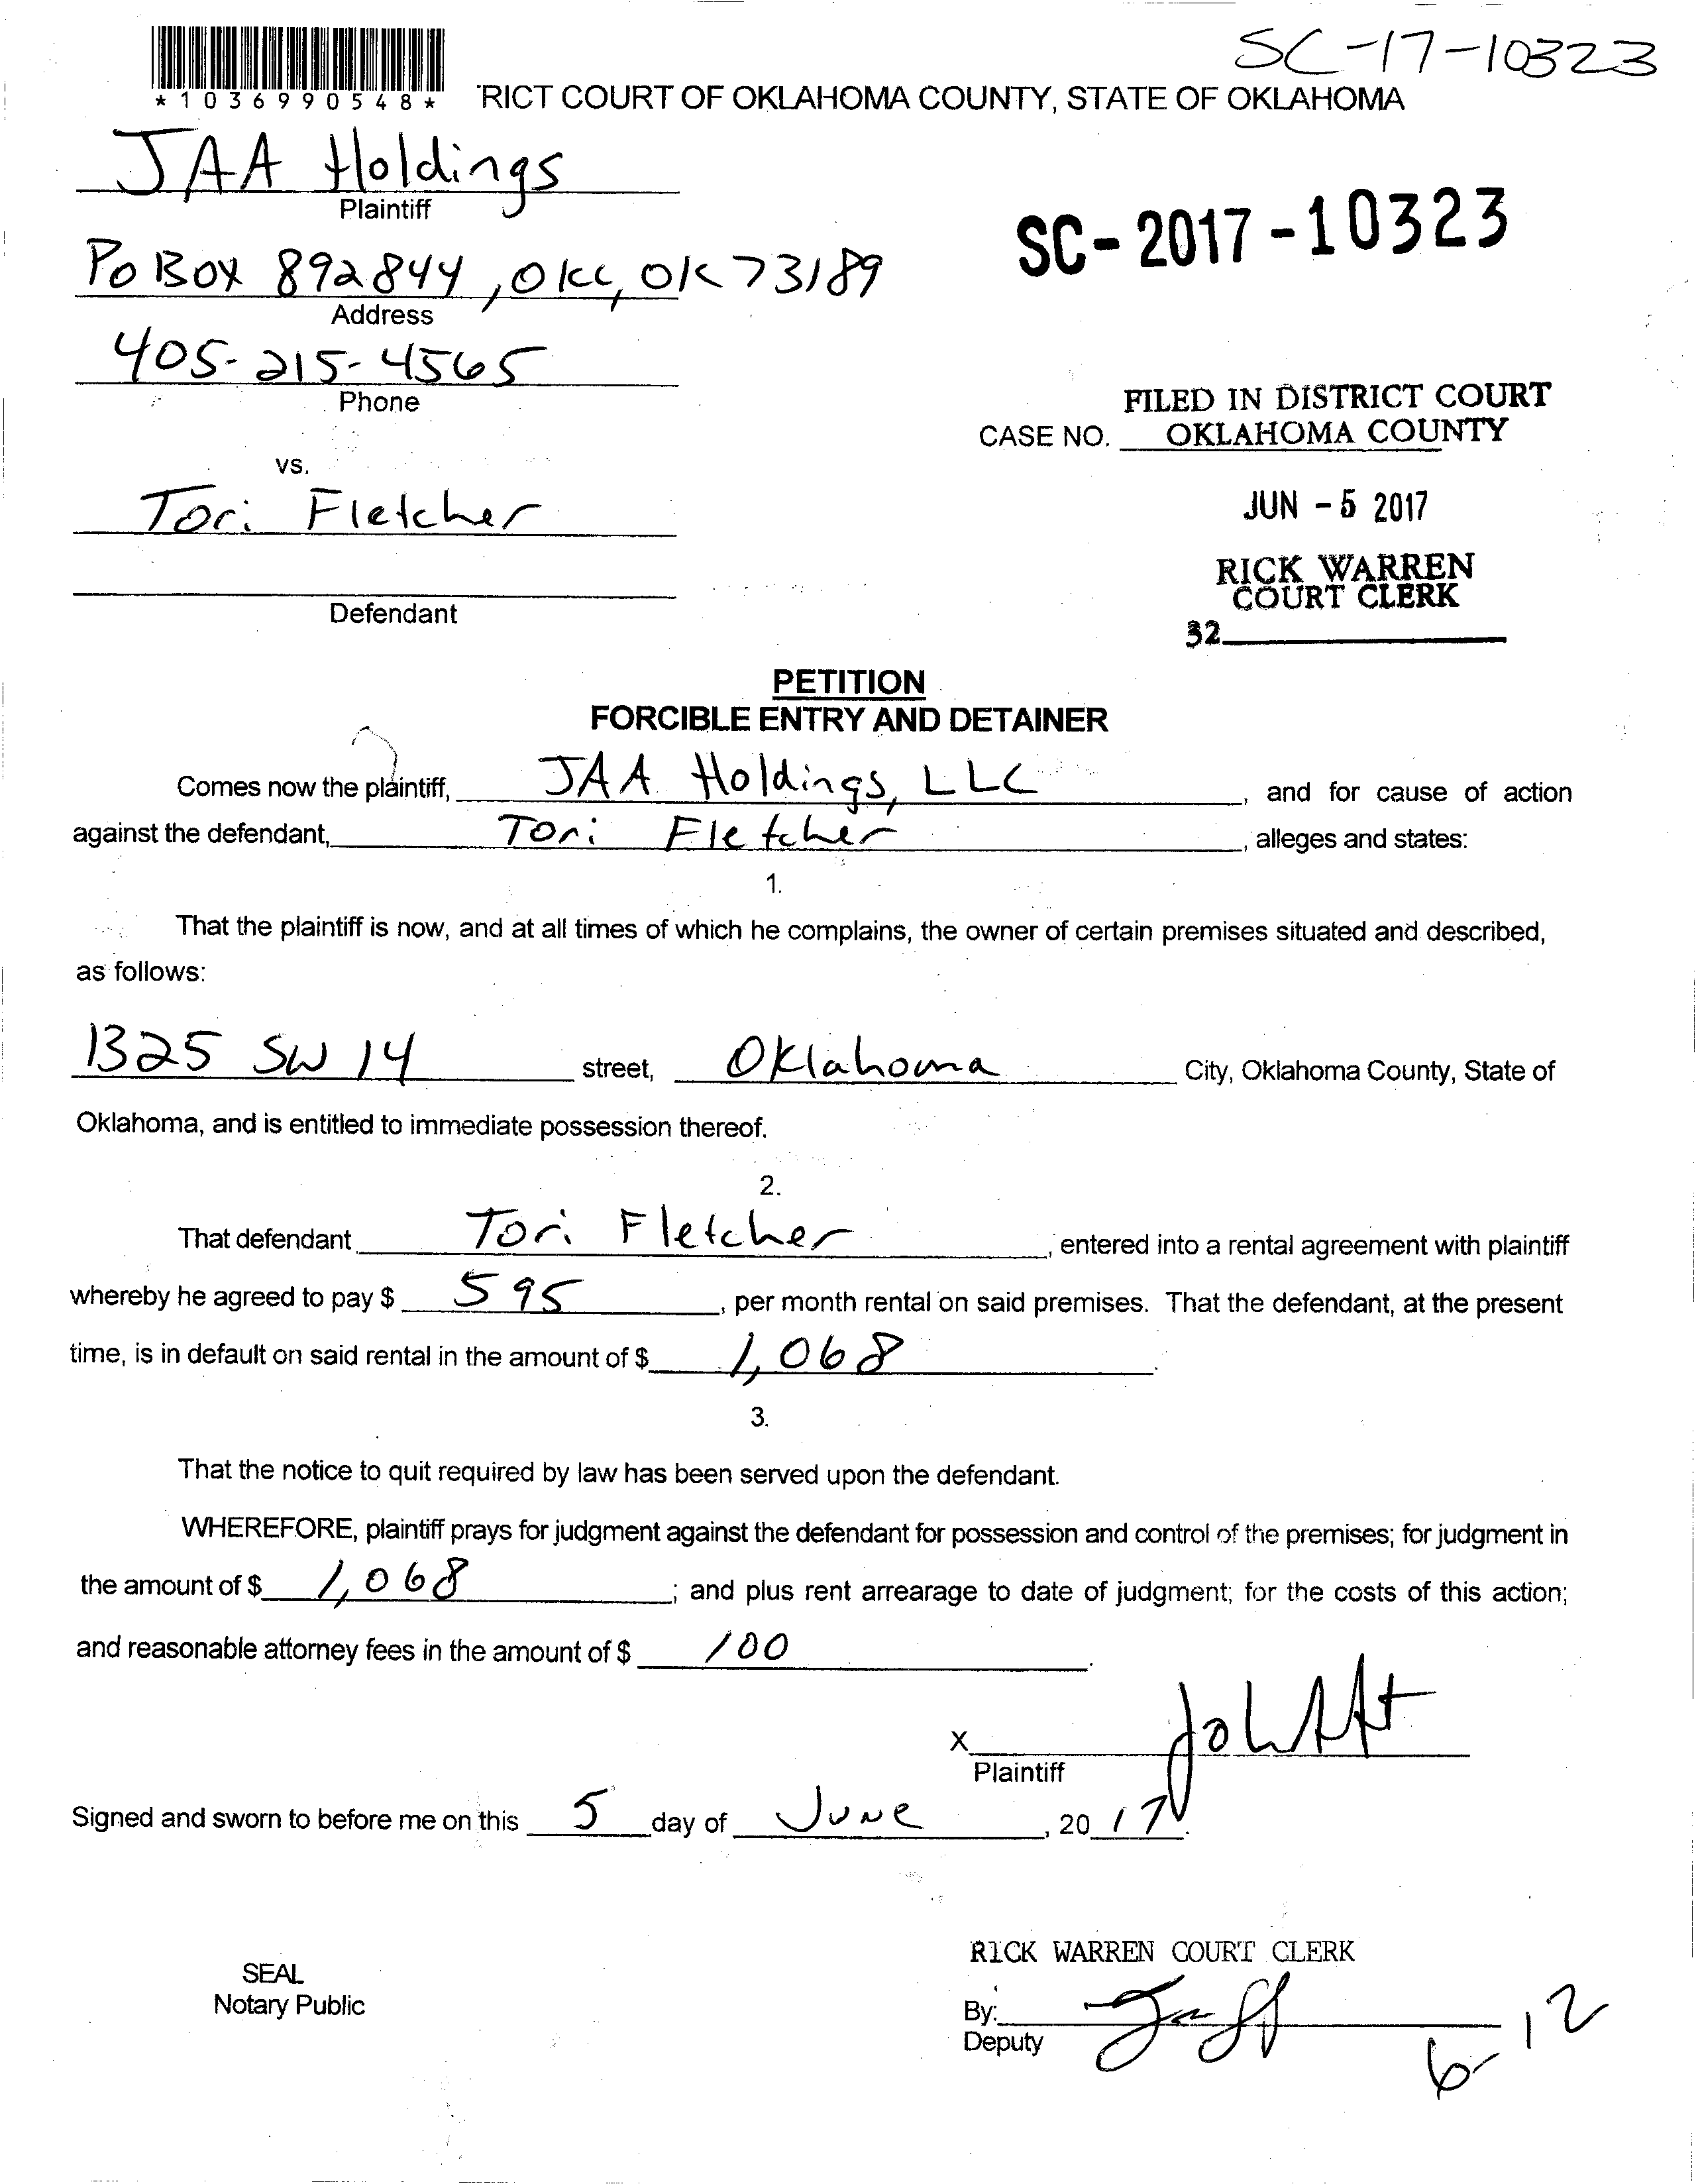 SC-17-10323
*1036990548*
'RICT COURT OF OKLAHOMA COUNTY, STATE OF OKLAHOMA
JAA Holdings
Plaintiff
SC-2017-10323
PO Box 892844, OKC, OK 73189
Address
405-215-4565
Phone
FILED IN DISTRICT COURT
CASE NO. OKLAHOMA COUNTY
vs.
Tori Fletcher
JUN -5 2017
RICK WARREN
COURT CLERK
Defendant
32
PETITION
FORCIBLE ENTRY AND DETAINER
Comes now the plaintiff, JAA Holdings, LLC, and for cause of action
against the defendant, Tori Fletcher, alleges and states:
1.
That the plaintiff is now, and at all times of which he complains, the owner of certain premises situated and described,
as follows:
1325 SW 14 street, Oklahoma City, Oklahoma County, State of
Oklahoma, and is entitled to immediate possession thereof.
2.
That defendant Tori Fletcher, entered into a rental agreement with plaintiff
whereby he agreed to pay $ 595, per month rental on said premises. That the defendant, at the present
time, is in default on said rental in the amount of $ 1,068.
3.
That the notice to quit required by law has been served upon the defendant.
WHEREFORE, plaintiff prays for judgment against the defendant for possession and control of the premises; for judgment in
the amount of $ 1,068; and plus rent arrearage to date of judgment; for the costs of this action;
and reasonable attorney fees in the amount of $ 100.
X
Plaintiff
Signed and sworn to before me on this 5 day of June, 2017.
RICK WARREN COURT CLERK
SEAL
Notary Public
By:
Deputy
6-12